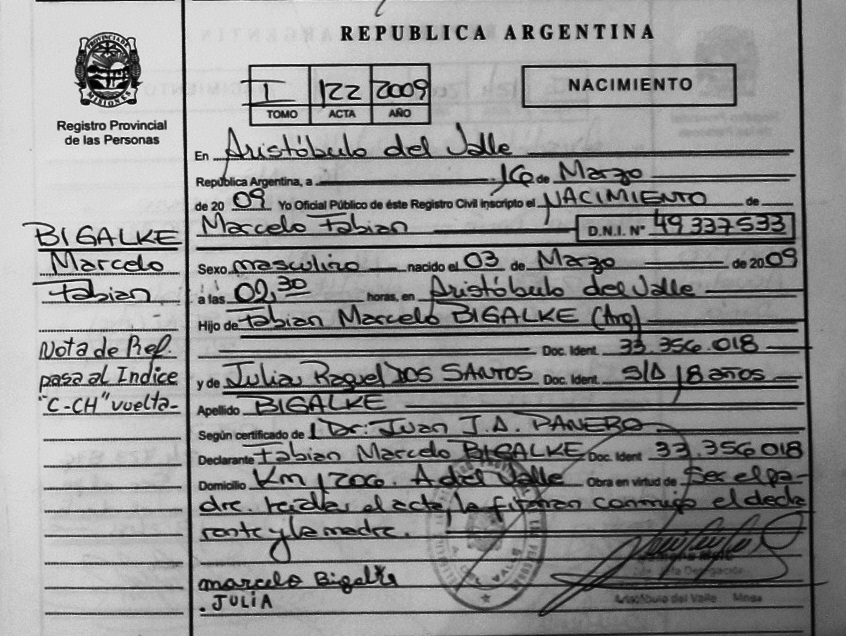 REPUBLICA ARGENTINA
PROVINCIA DE MISIONES
Registro Provincial
de las Personas
I 122 2009
TOMO ACTA AÑO
NACIMIENTO
En Aristóbulo del Valle
República Argentina, a 16 de Marzo
de 20 09 Yo Oficial Público de éste Registro Civil inscripto el NACIMIENTO de
Marcelo Fabian D.N.I. N° 49 337 533
BIGALKE
Marcelo
Fabian
Sexo masculino nacido el 03 de Marzo de 20 09
a las 02,30 horas, en Aristóbulo del Valle
Hijo de Fabian Marcelo BIGALKE (Arg)
Doc. Ident. 33.356.018
y de Julia Raquel DOS SANTOS Doc. Ident. S/D 18 años
Apellido BIGALKE
Nota de Ref.
pasa al Indice
"C-CH" vuelta-
Según certificado de Dr. Juan J.A. PANERO
Declarante Fabian Marcelo BIGALKE Doc. Ident 33.356 018
Domicilio Km 1206. A del Valle Obra en virtud de Ser el pa-
dre. leída el acta, la firman conmigo el decla
rante y la madre.
marcelo Bigalke
. JULIA
Aristóbulo del Valle Mnes